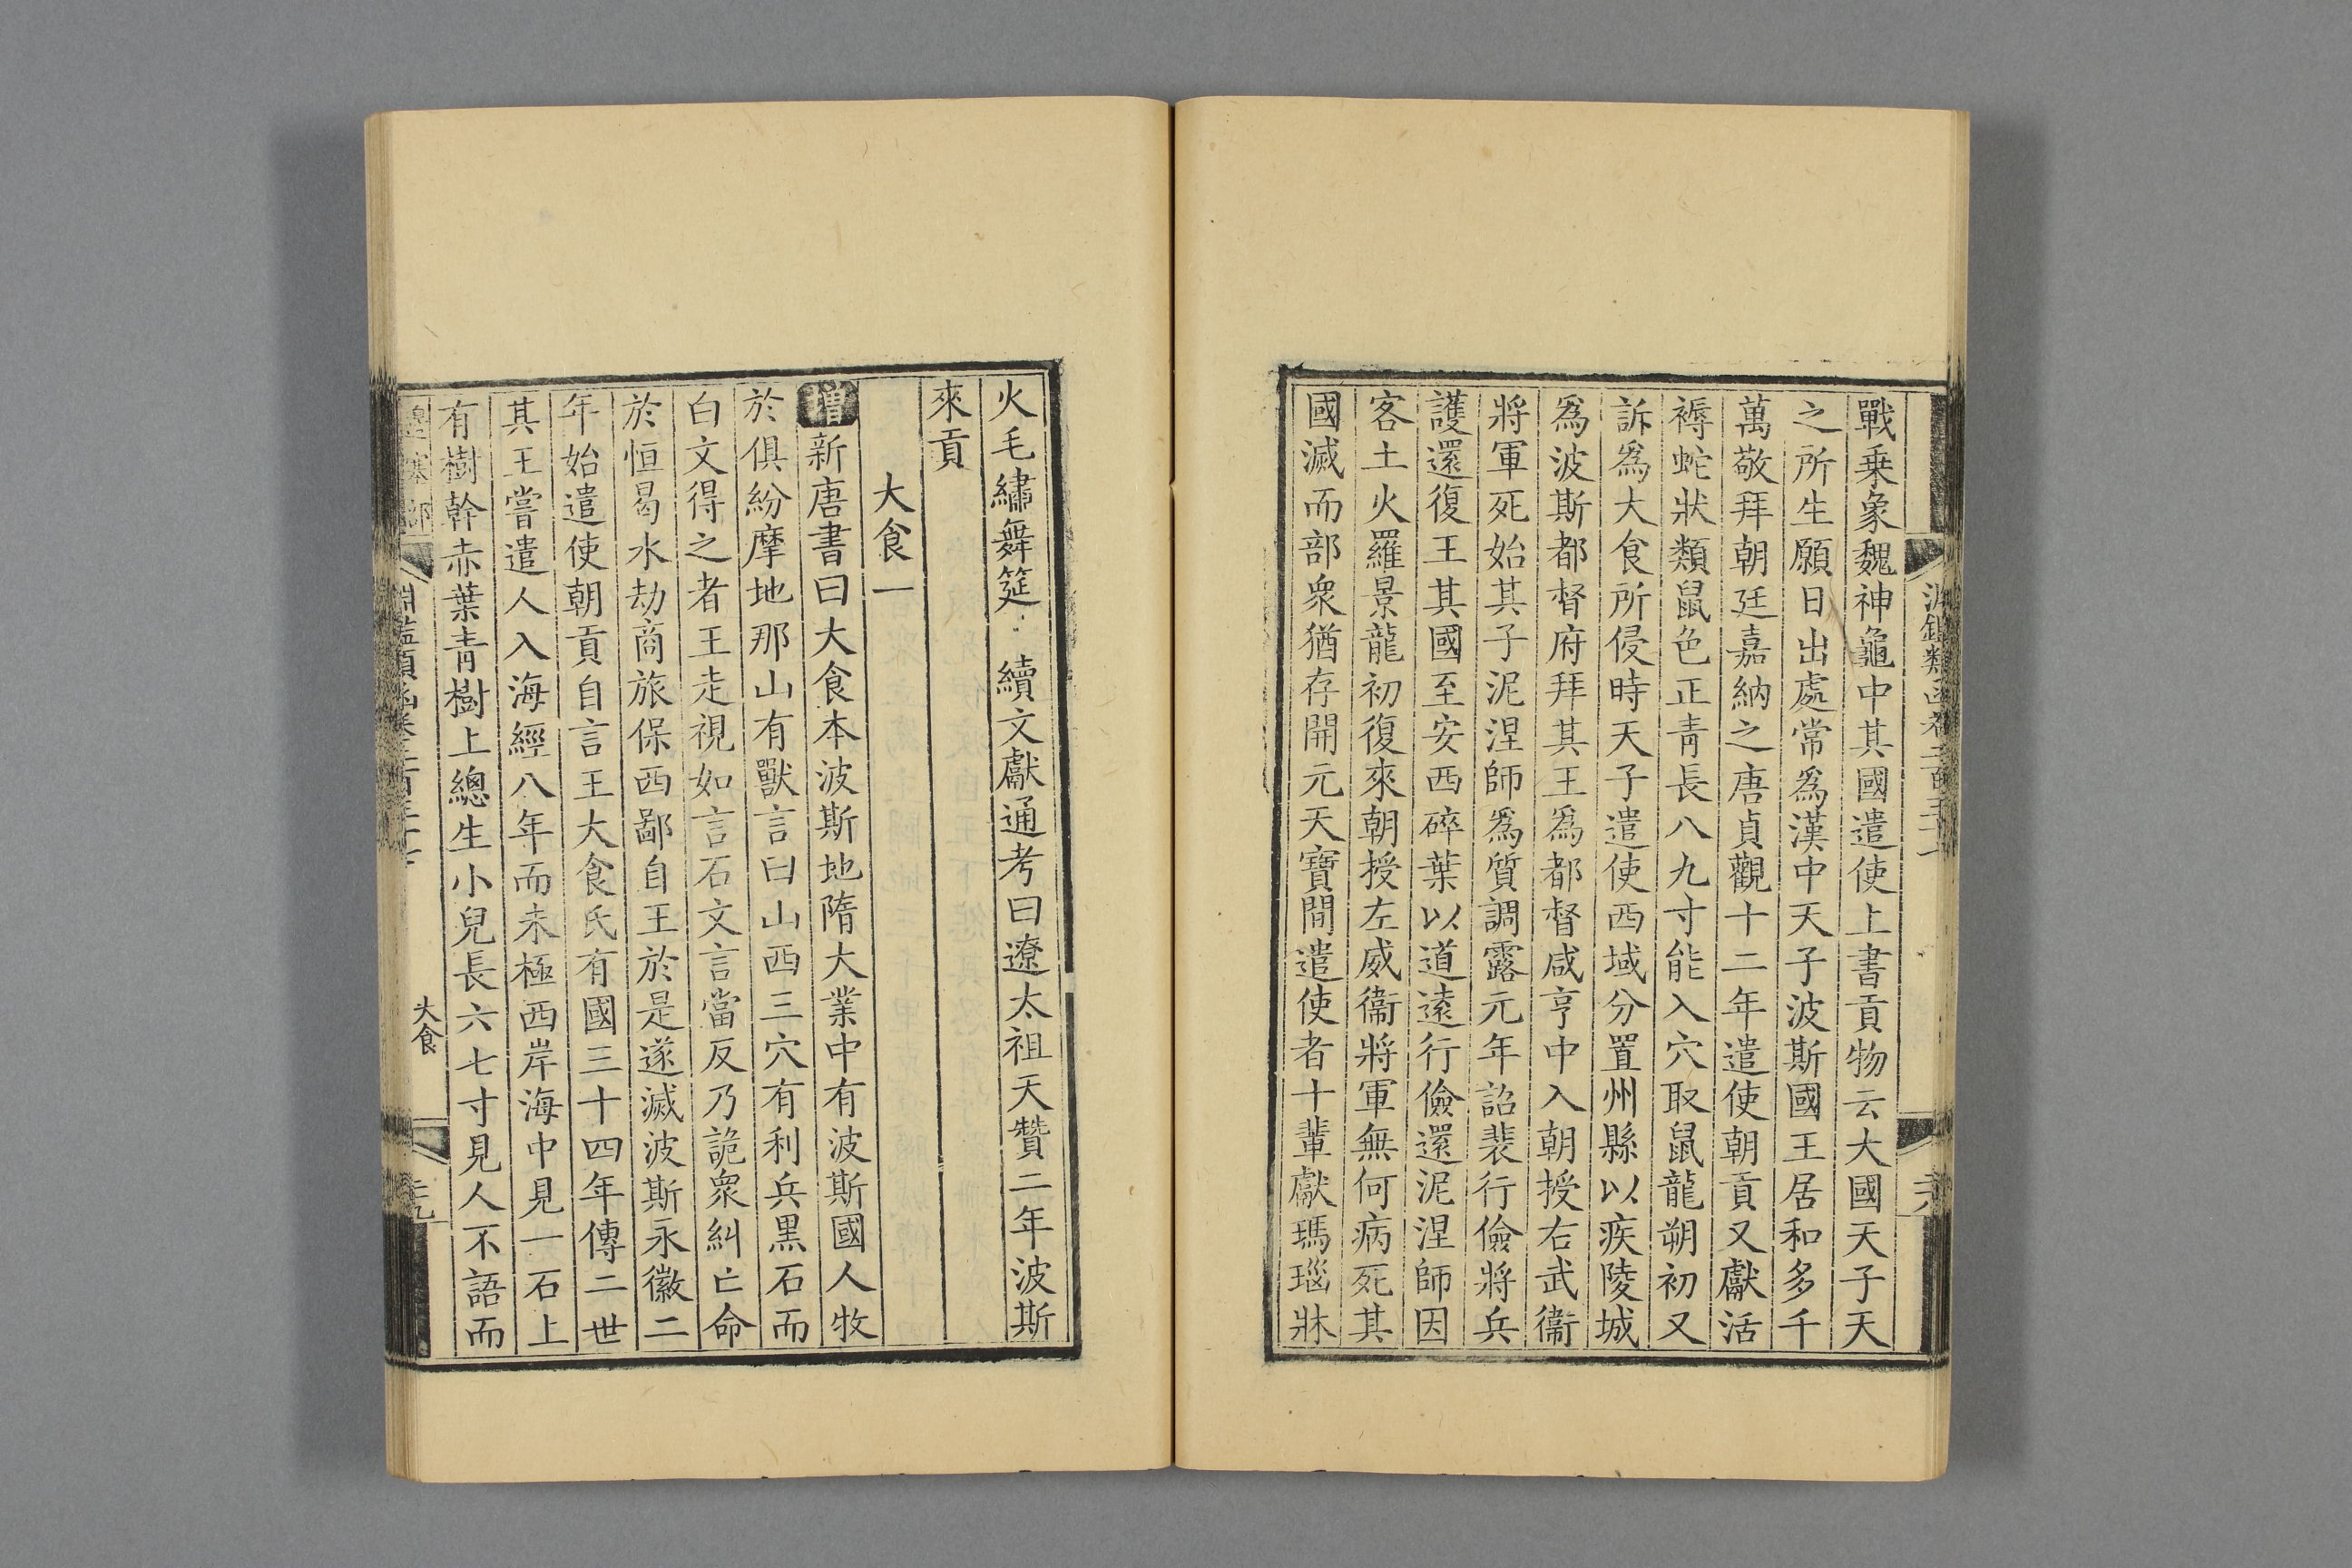 戰乗象魏神龜中其國遣使上書貢物云大國天子天
之所生願日出處常爲漢中天子波斯國王居和多千
萬敬拜朝廷嘉納之唐貞觀十二年遣使朝貢又獻活
褥蛇狀類鼠色正青長八九寸能入穴取鼠龍朔初又
訴爲大食所侵時天子遣使西域分置州縣以疾陵城
爲波斯都督府拜其王爲都督咸亨中入朝授右武衞
將軍死始其子泥涅師爲質調露元年詔裴行儉將兵
護還復王其國至安西碎葉以道遠行儉還泥涅師因
客土火羅景龍初復來朝授左威衞將軍無何病死其
國滅而部衆猶存開元天寶間遣使者十輩獻瑪瑙牀
火毛繡舞筵 續文獻通考曰遼太祖天贊二年波斯
來貢
大食一
增新唐書曰大食本波斯地隋大業中有波斯國人牧
於俱紛摩地那山有獸言曰山西三穴有利兵黑石而
白文得之者王走視如言石文言當反乃詭衆糾亡命
於恒曷水劫商旅保西鄙自王於是遂滅波斯永徽二
年始遣使朝貢自言王大食氏有國三十四年傳二世
其王嘗遣人入海經八年而未極西岸海中見一石上
有樹幹赤葉青樹上總生小兒長六七寸見人不語而
大食